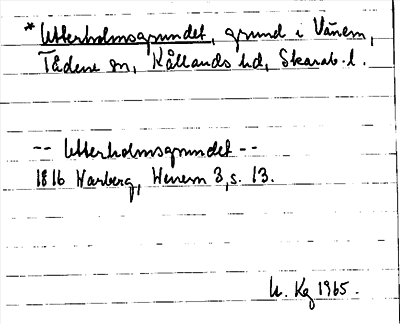 *Utterholmsgrundet, grund i Vänern,
Tådene sn, Kållands hd, Skarab. l.
-- Utterholmsgrundet --
1816 Warberg, Wenern 3, s. 13.
U. Kg 1965.